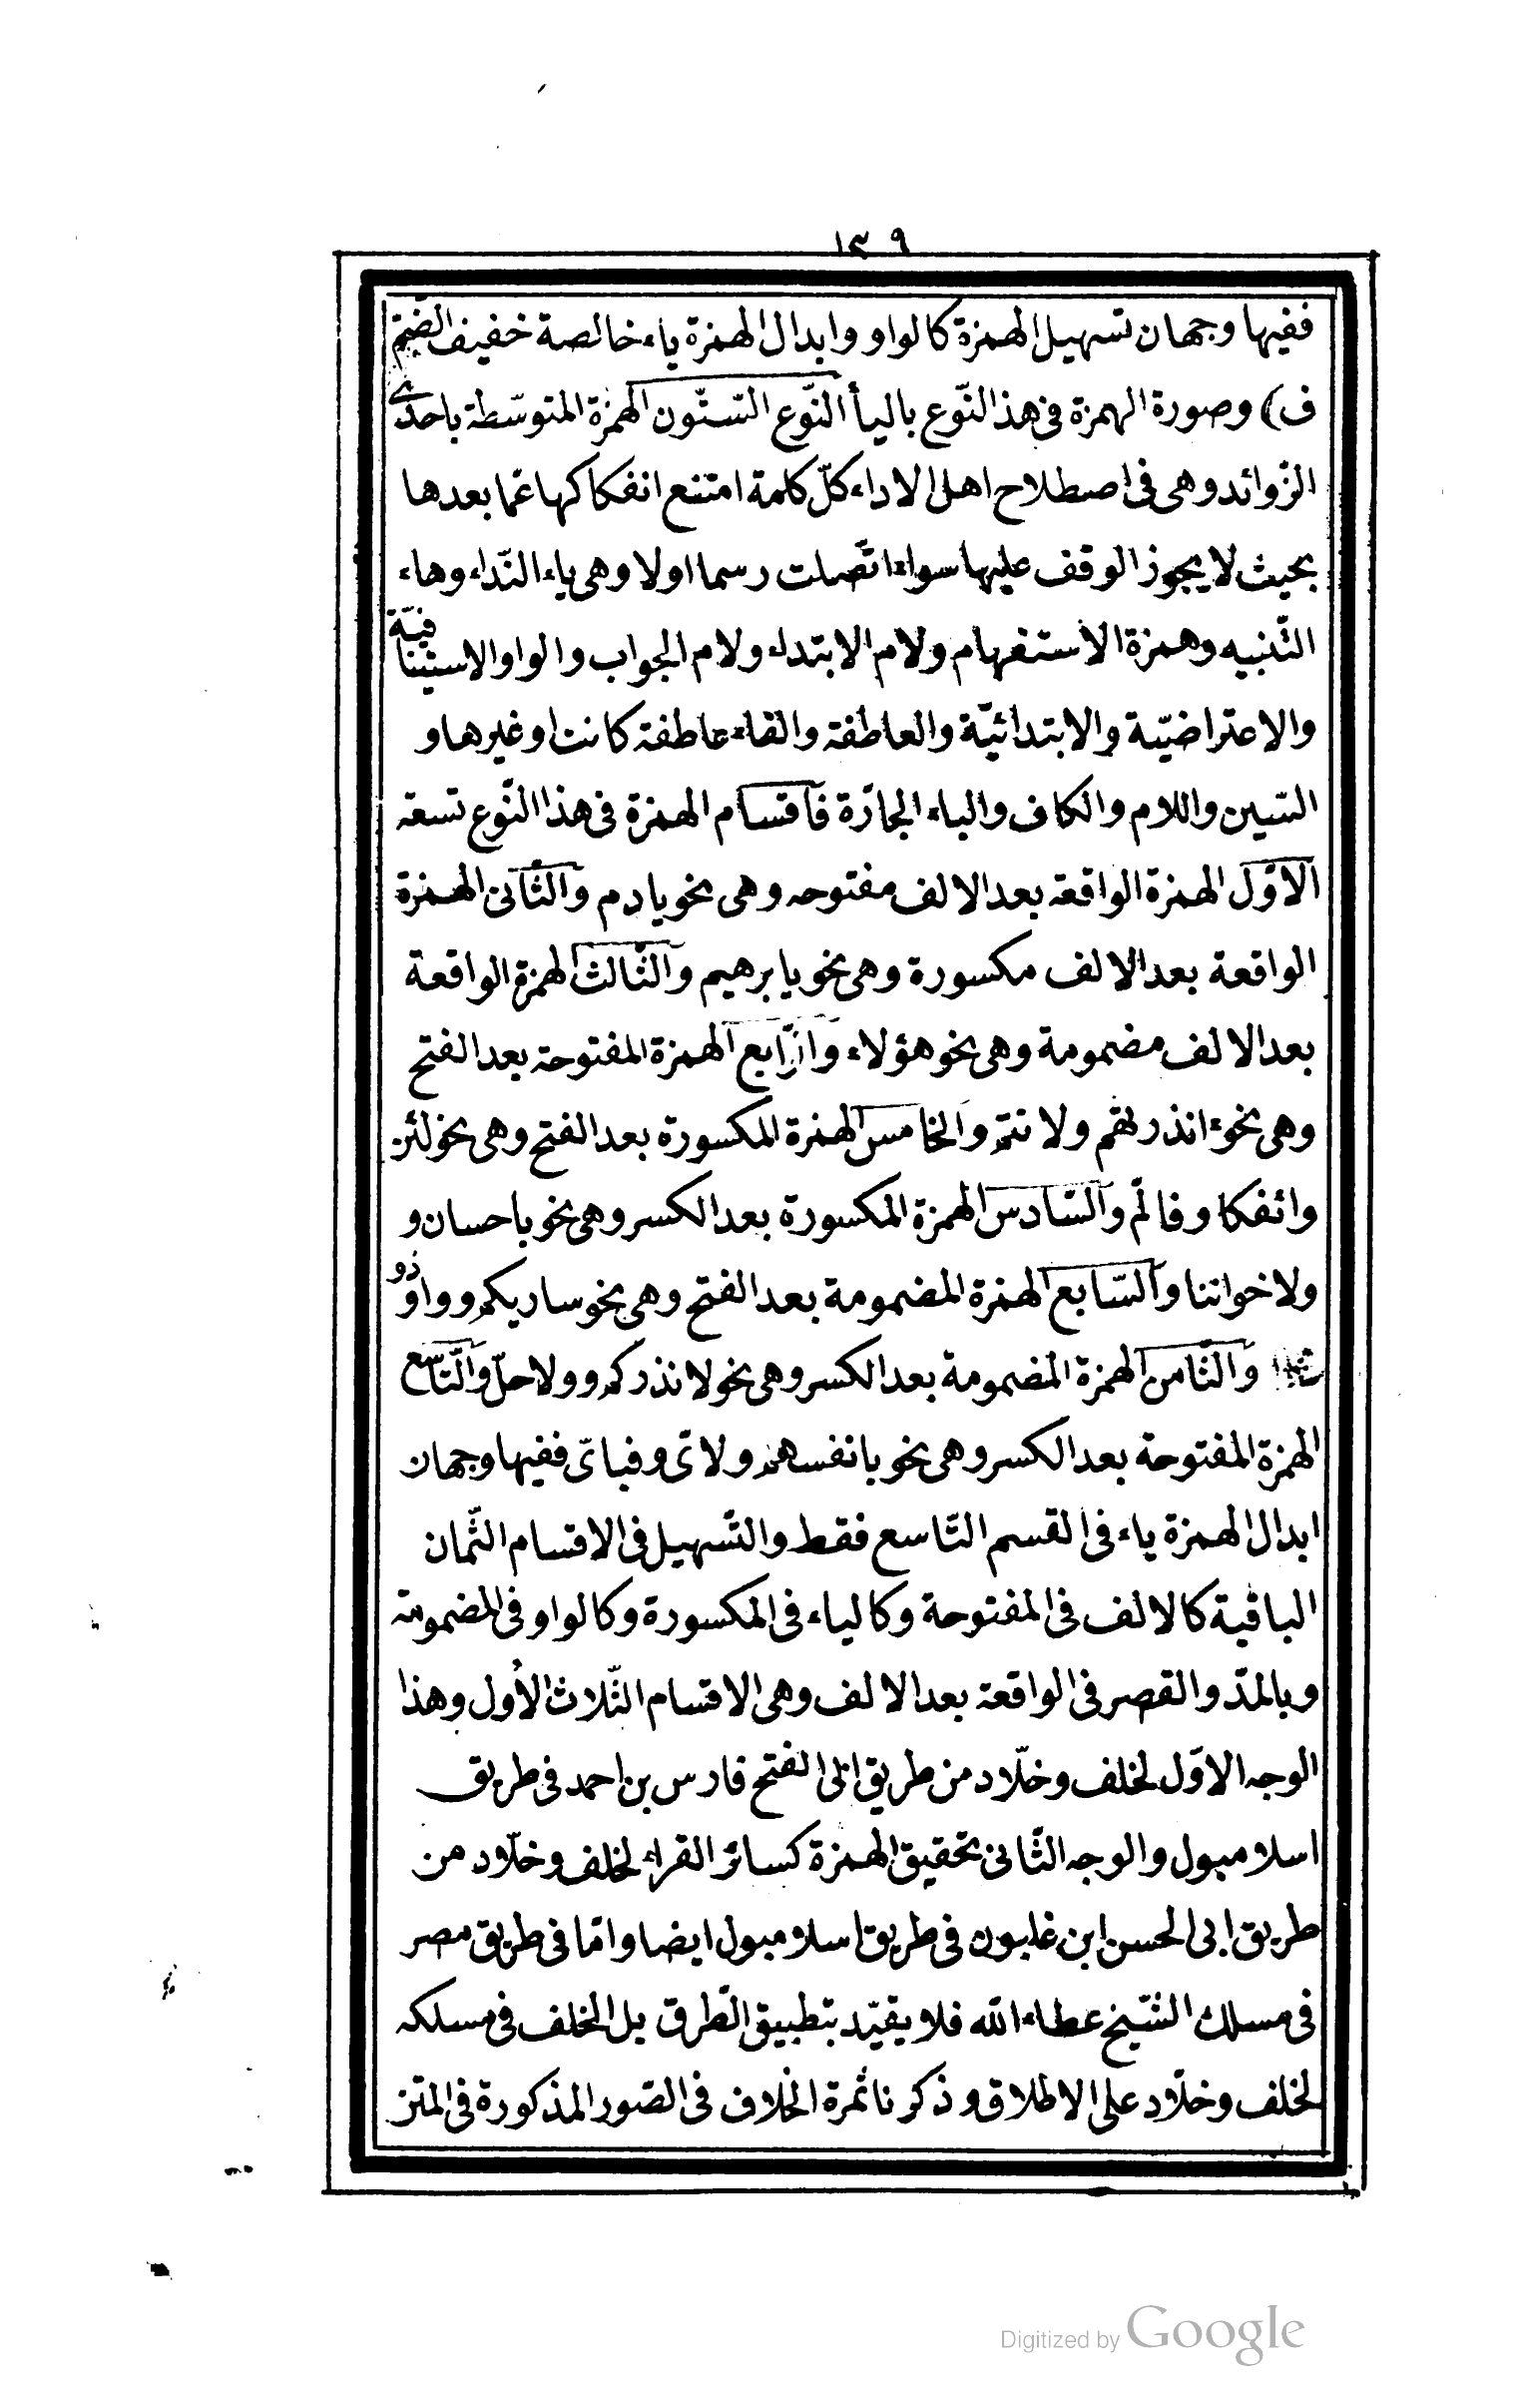 ١٣٩
ففيها وجهان تسهيل الهمزة كالواو وابدال الهمزة ياء خالصة خفيف الضمّ
ف) وصورة الهمزة فى هذ النّوع باليأ النّوع السّتّون الهمزة المتوسّطة باحدى
الزّوائد وهى فى اصطلاح اهل الاداء كلّ كلمة امتنع انفكاكها عمّا بعدها
بحيث لا يجوز الوقف عليها سواء اتّصلت رسما اولا وهى ياء النّداء وهاء
التّنبيه وهمزة الاستفهام ولام الابتداء ولام الجواب والواو الاستينافيّة
والاعتراضيّة والابتدائيّة والعاطفة والفاء عاطفة كانت او غيرها و
السّين واللام والكاف والباء الجارّة فاقسام الهمزة فى هذا النّوع تسعة
الاوّل الهمزة الواقعة بعد الالف مفتوحه وهى نحو يادم والثّانى الهمزة
الواقعة بعد الالف مكسورة وهى نحو يابرهيم والثّالث الهمزة الواقعة
بعد الالف مضمومة وهى نحو هؤلاء والرّابع الهمزة المفتوحة بعد الفتح
وهى نحو ءانذرتهم ولانتم والخامس الهمزة المكسورة بعد الفتح وهى نحو لئن
وائفكا وفالّم والسّادس الهمزة المكسورة بعد الكسر وهى نحو باحسان و
ولاخواننا والسّابع الهمزة المضمومة بعد الفتح وهى نحو ساريكم وواوذو
والثّامن الهمزة المضمومة بعد الكسر وهى نحو لانذركم وولاحلّ والتّاسع
الهمزة المفتوحة بعد الكسر وهى نحو بانفسهم ولاىّ وفباىّ ففيها وجهان
ابدال الهمزة ياء فى القسم التّاسع فقط والتّسهيل فى الاقسام الثّمان
الباقية كالالف فى المفتوحة وكالياء فى المكسورة وكالواو فى المضمومة
وبالمدّ والقصر فى الواقعة بعد الالف وهى الاقسام الثّلاث الأول وهذا
الوجه الاوّل لخلف وخلّاد من طريق ابى الفتح فارس بن احمد فى طريق
اسلامبول والوجه الثّانى تحقيق الهمزة كسائر القراء لخلف وخلّاد من
طريق ابى الحسن ابن غلبون فى طريق اسلامبول ايضا وامّا فى طريق مصر
فى مسلك الشّيخ عطاء الله فلا يقيّد بتطبيق الطّرق بل الخلف فى مسلكه
لخلف وخلّاد على الاطلاق وذكرنا ثمرة الخلاف فى الصّور المذكورة فى المتن
Digitized by Google